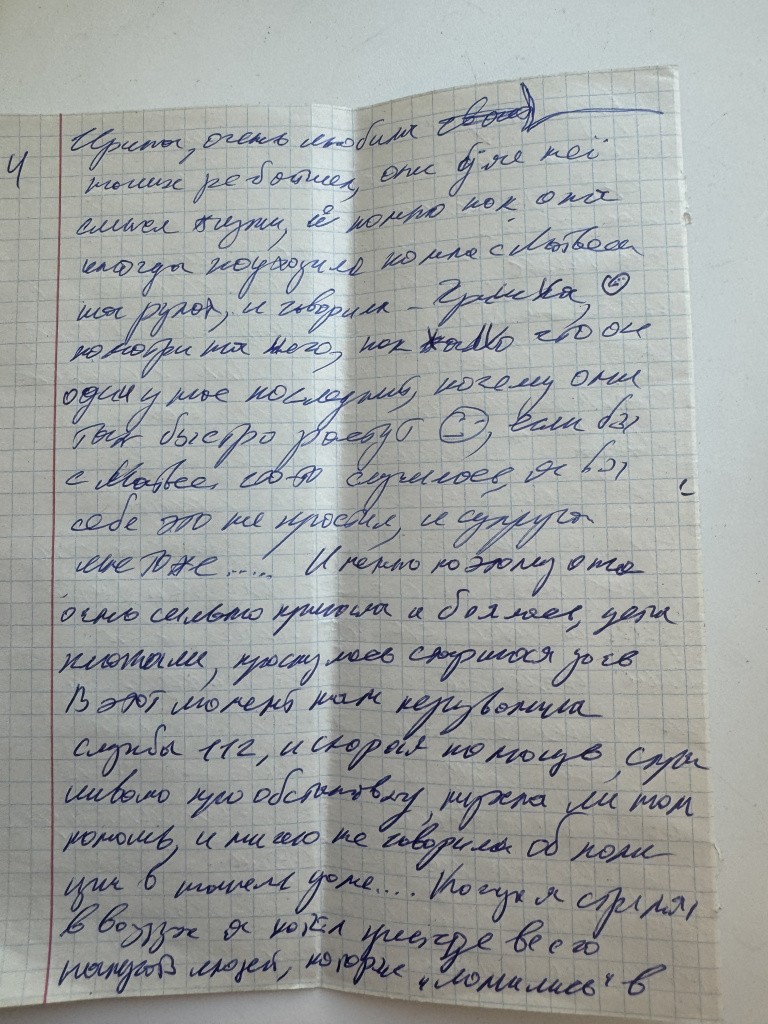 4
Ирина, очень любила
наших ребятишек, они для неё
смысл жизни, я помню как она
иногда подходила ко мне с Матвеем
на руках, и говорила – Гришка,
посмотри на него, как жалко что он
один у нас последний, почему они
так быстро растут, если бы
с Матвеем что-то случилось, я бы
себе это не простил, и супруга
мне тоже..... Именно поэтому она
очень сильно кричала и боялась, дети
плакали, проснулась старшая дочь
В этот момент нам перезвонила
служба 112, и скорая помощь, спра
шивала про обстановку, нужна ли нам
помощь, и никто не говорил об поли
ции в нашем доме.... Когда я стрелял
в воздух я хотел прежде всего
напугать людей, которые "ломились" в